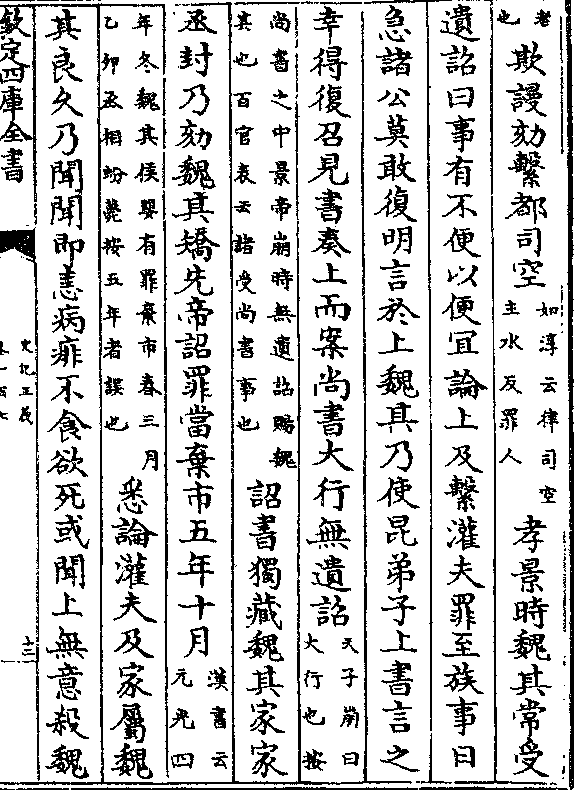 者也欺謾劾繫都司空如淳云律司空主水及罪人孝景時魏其常受
遺詔曰事有不便以便宜論上及繫灌夫罪至族事日
急諸公莫敢復明言於上魏其乃使昆弟子上書言之
幸得復召見書奏上而案尚書大行無遺詔天子崩曰大行也按
尚書之中景帝崩時無遺詔賜魏其也百官表云諸受尚書事也詔書獨藏魏其家家
丞封乃劾魏其矯先帝詔罪當棄市五年十月漢書云元光四
年冬魏其侯嬰有罪棄市春三月乙卯丞相蚡薨按五年者誤也悉論灌夫及家屬魏
其良久乃聞聞即恚病痱不食欲死或聞上無意殺魏
欽定四庫全書
史記正義
卷一百七
十三